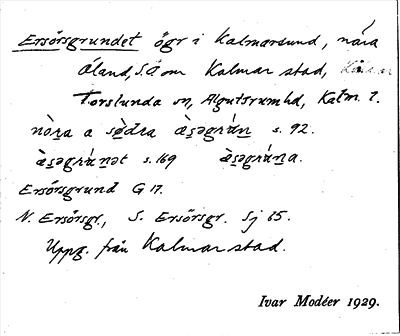 Ersörsgrundet ögr i Kalmarsund, nära
Öland, S.O om Kalmar stad,
Torslunda sn, Algutsrumhd, Kalm. l.
nò̱ra a sø̱dra æ̀ṣəgrán s. 92.
æ̀ṣəgrán̠ət s. 169 æ̀ṣəgrán̠a.
Ersörsgrund G 17.
N. Ersörsgr., S. Ersörsgr. Sj 65.
Uppg. från Kalmar stad.
Ivar Modéer 1929.